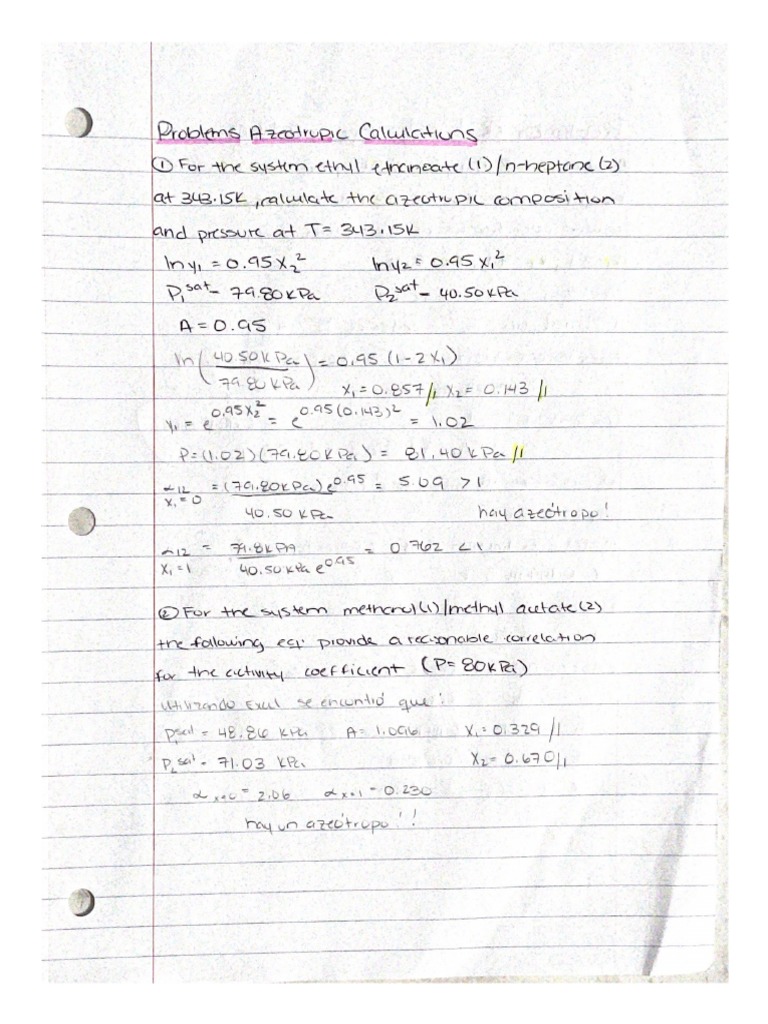 Problems Azeotropic Calculations
① For the system ethyl ethanoate (1)/n-heptane (2)
at 343.15K, calculate the azeotropic composition
and pressure at T= 343.15K
ln γ₁ = 0.95 X₂² ln γ₂ = 0.95 X₁²
P₁ˢᵃᵗ - 79.80 kPa P₂ˢᵃᵗ - 40.50 kPa
A = 0.95
ln (40.50 kPa / 79.80 kPa) = 0.95 (1-2X₁)
X₁ = 0.857 // X₂ = 0.143 //
γ₁ = e^0.95X₂² = e^0.95(0.143)² = 1.02
P= (1.02)(79.80kPa) = 81.40 kPa //
α12 X₁=0 = (79.80kPa) e^0.95 / 40.50 kPa = 5.09 >1 hay azeótropo!
α12 X₁=1 = 79.8kPa / 40.50 kPa e^0.95 = 0.762 <1
② For the system methanol(1)/methyl acetate(2)
the following eq: provide a reasonable correlation
for the activity coefficient (P= 80kPa)
utilizando Excel se encontró que:
P₁ˢᵃᵗ = 48.86 kPa A= 1.096 X₁= 0.329 //
P₂ˢᵃᵗ - 71.03 kPa X₂= 0.670 //
α x=0 = 2.06 α x=1 = 0.230
hay un azeótropo!!